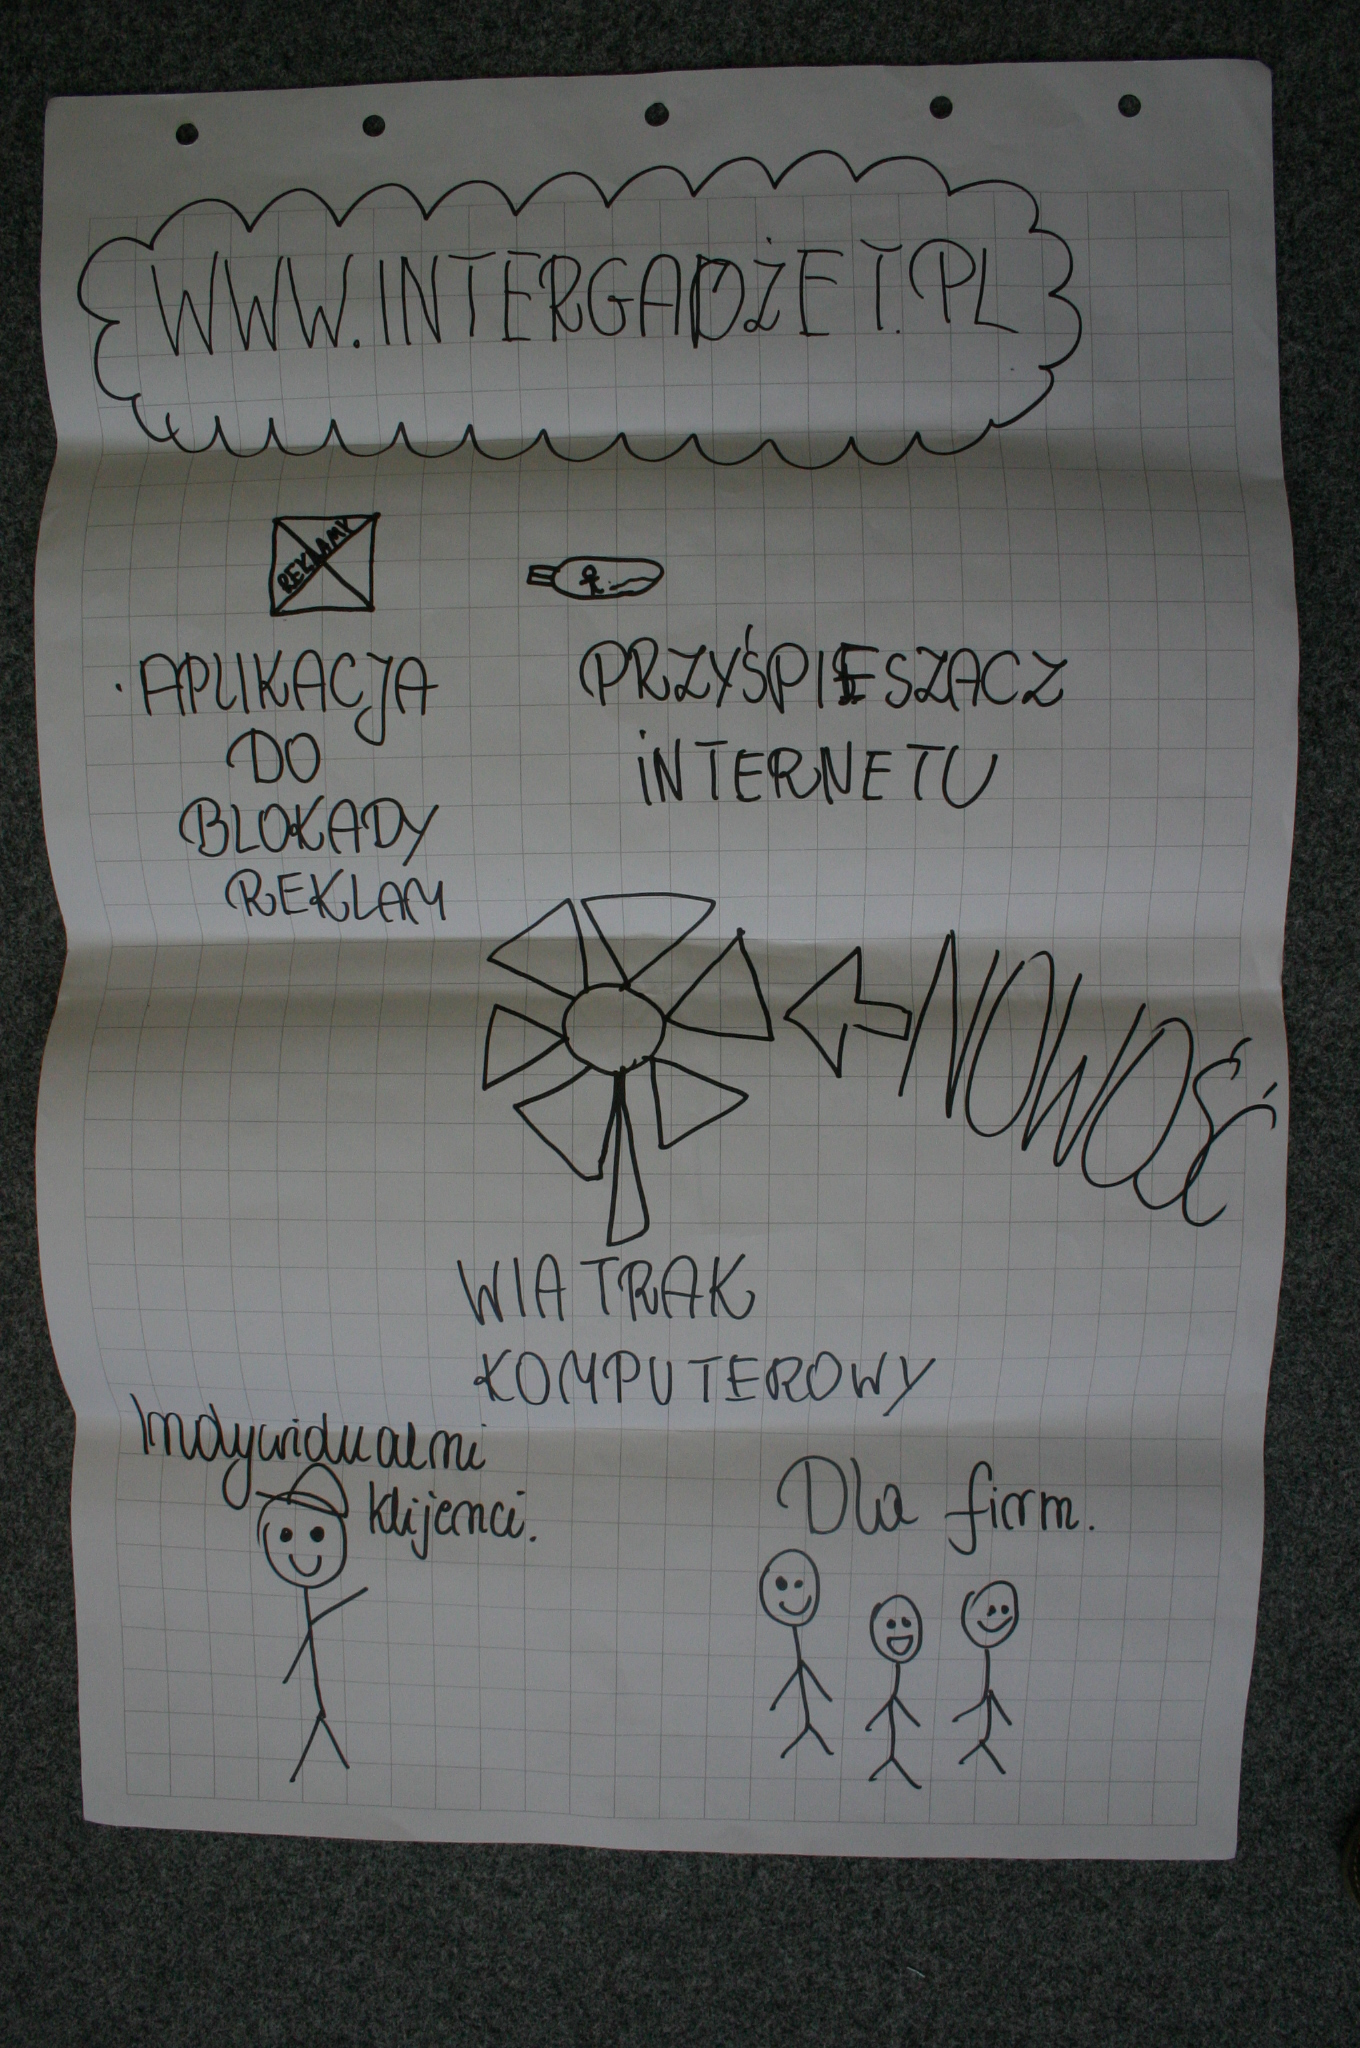 WWW.INTERGADŻET.PL
REKLAMY
· APLIKACJA
DO
BLOKADY
REKLAM
PRZYŚPIESZACZ
INTERNETU
NOWOŚĆ
WIATRAK
KOMPUTEROWY
Indywidualni
klijenci.
Dla firm.